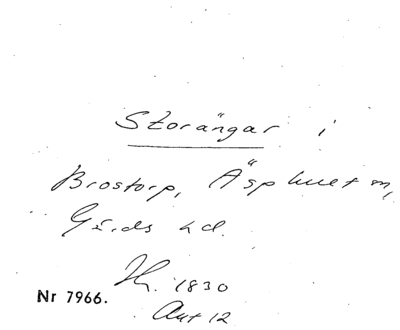 Storängar i
Brostorp, Äsphult m,
Gärds hd.
1830
Nr 7966.
Akt 12